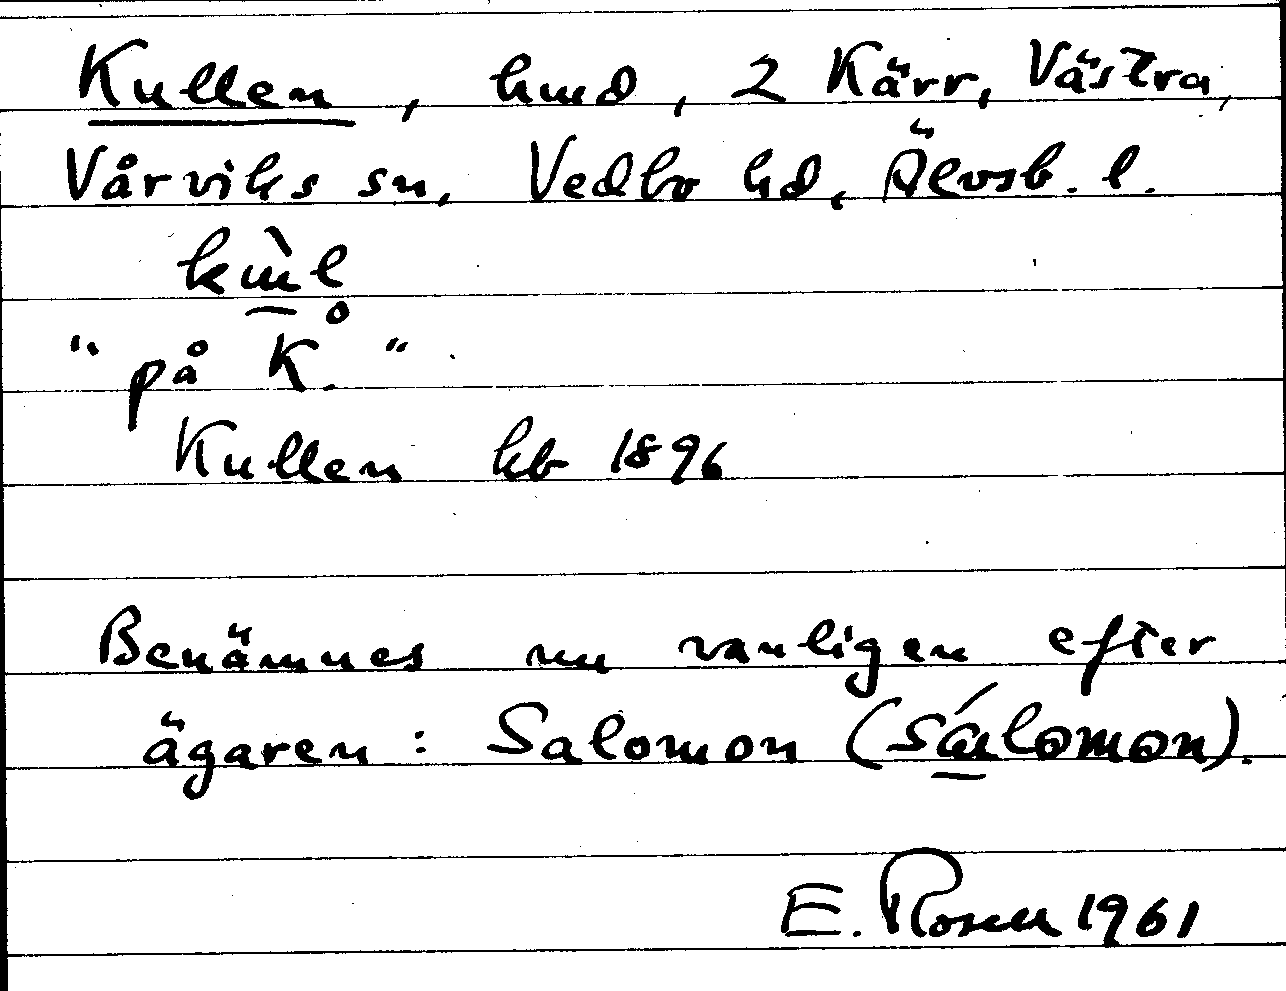 Kullen, hmd, 2 Kärr, Västra,
Vårviks sn, Vedbo hd, Älvsb. l.
"på K."
Kullen kb 1896
Benämnes nu vanligen efter
ägaren: Salomon (sálomon).
E. Rosen 1961